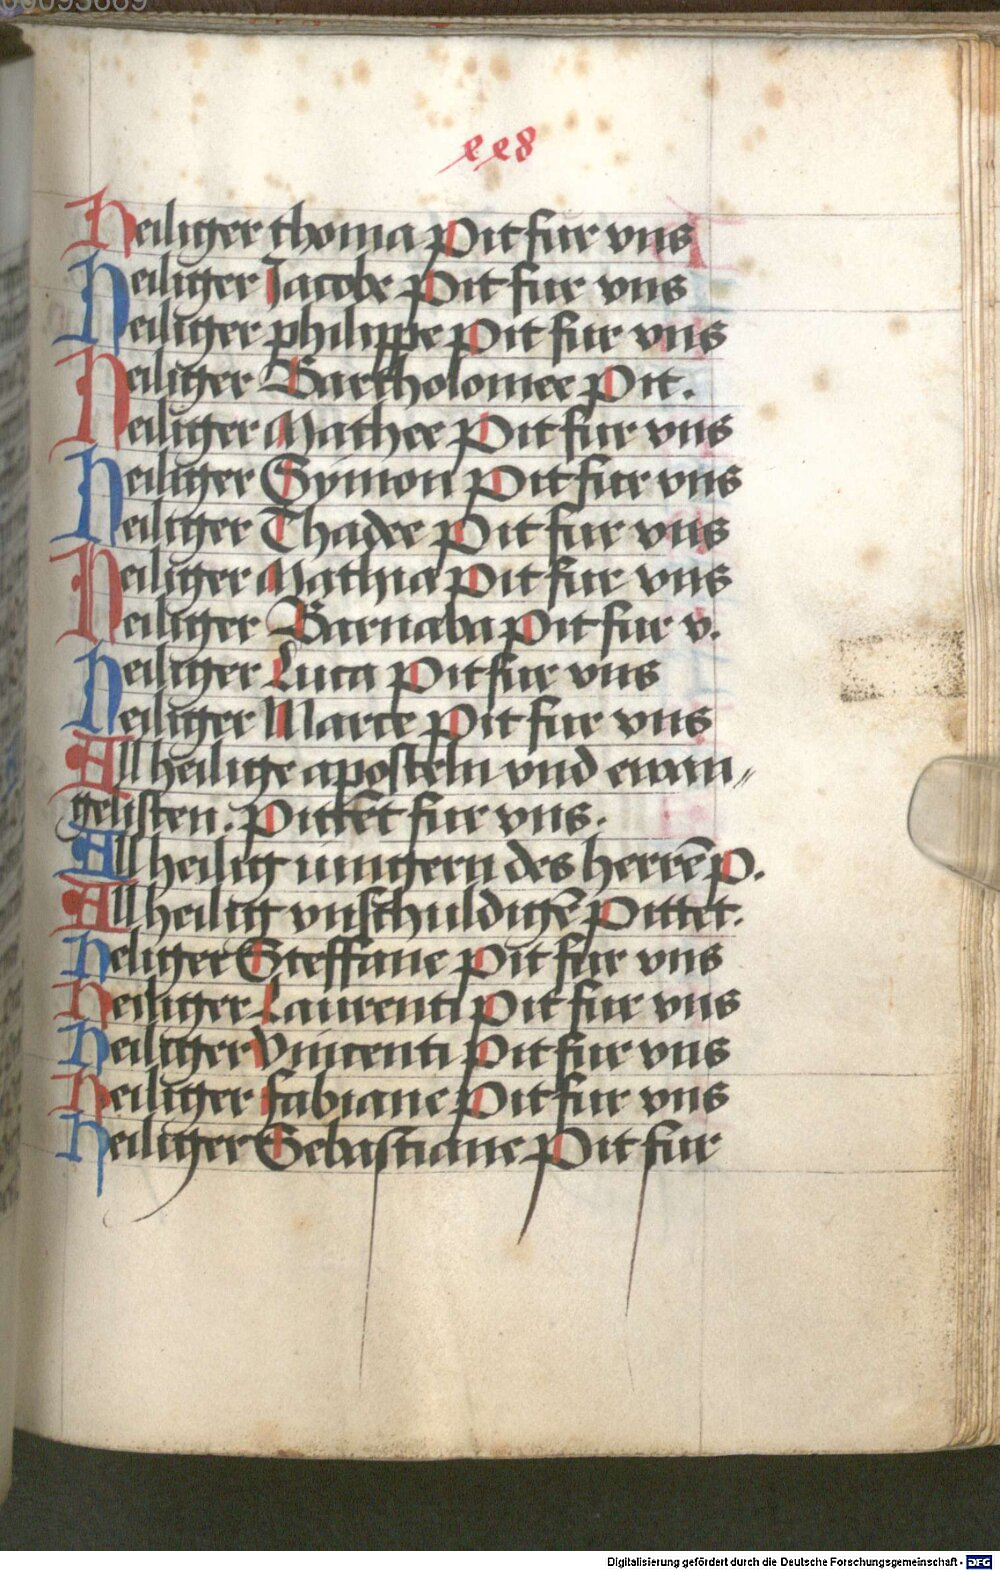 xx8
Heiliger thoma Pit fur vns
Heiliger Jacobe Pit fur vns
Heiliger philippe Pit fur vns
Heiliger Bartholomee Pit.
Heiliger Mathee Pit fur vns
Heiliger Symon Pit fur vns
Heiliger Thadee Pit fur vns
Heiliger Mathia Pit fur vns
Heiliger Barnaba Pit fur v.
Heiliger Luca Pit fur vns
Heiliger Marce Pit fur vns
All heilige aposteln vnd ewan⸗
gelisten. Pittet fur vns.
All heilig iungern des herrē P.
All heilig vnschuldigē Pittet.
Heliger Steffane Pit fur vns
Heiliger Laurenti Pit fur vns
Heiliger Vincenti Pit fur vns
Heiliger fabiane Pit fur vns
Heiliger Sebastiane Pit fur
Digitalisierung gefördert durch die Deutsche Forschungsgemeinschaft - DFG